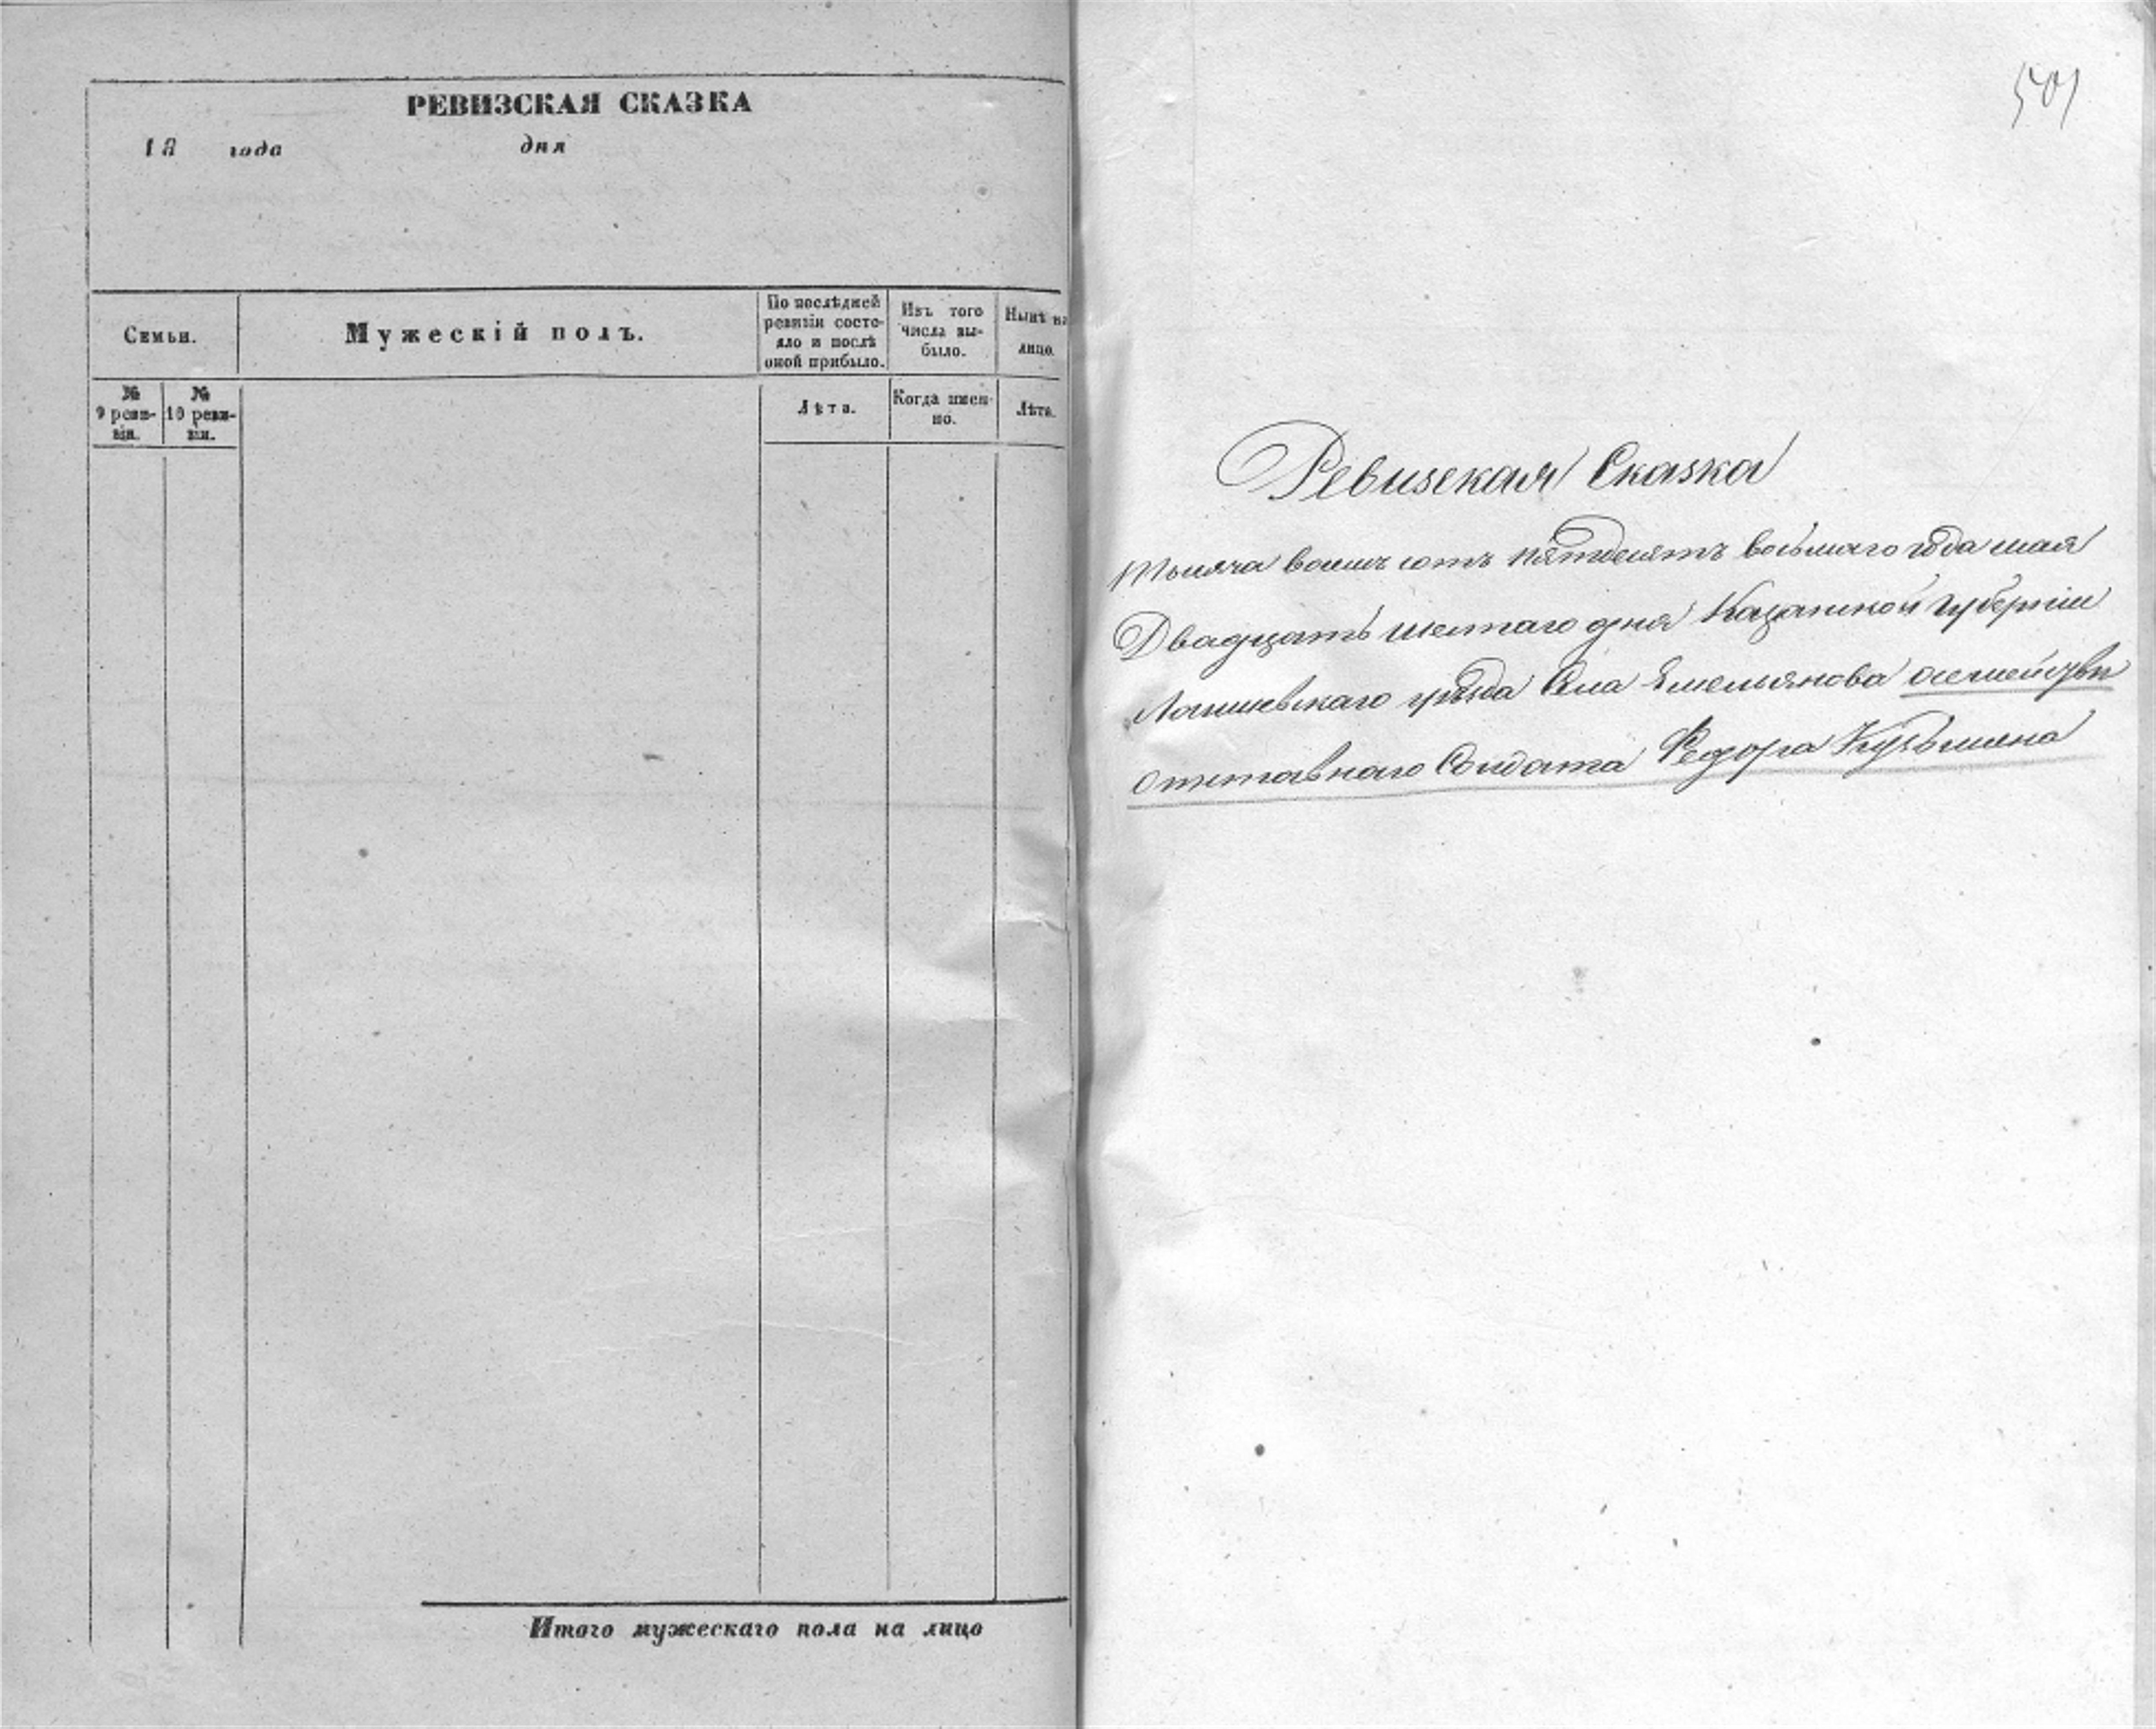 РЕВИЗСКАЯ СКАЗКА
18 года дня
Семьи.
Мужескій полъ.
По послѣдней
ревизіи состо-
яло и послѣ
оной прибыло.
Изъ того
числа вы-
было.
Нынѣ на
лицо.
№
9 реви-
зіи.
№
10 реви-
зіи.
Лѣта.
Когда имен-
но.
Лѣта.
Итого мужескаго пола на лицо
501
Ревизская Сказка
Тысяча восемь сотъ пятдесятъ восьмаго года мая
Двадцать шестаго дня Казанской губерніи
Лаишевскаго уѣзда Села Емельянова о семействѣ
отставнаго Солдата Федора Кузьмина